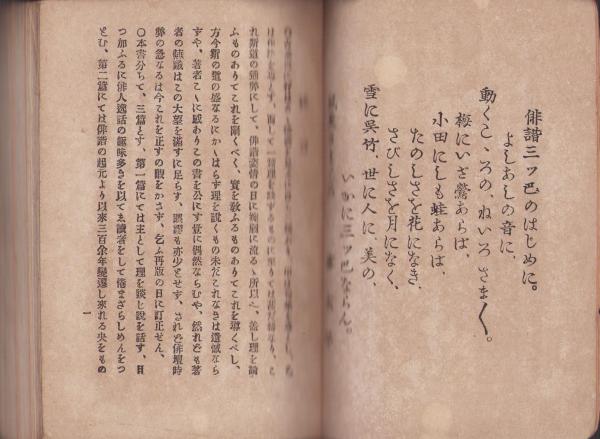 俳諧三ッ巴のはじめに。
よしあしの音に、
動くこゝろの、ねいろさま〲。
梅にいざ鶯あらば、
小田にしも蛙あらば、
たのしさを花になき、
さびしさを月になく、
雪に呉竹、世に人に、美の、
いかに三ッ巴ならん。
れ斯道の通弊にして、俳諧談情の日に流るゝ所以
ふものありてこれを剛くべく、實を敎ふるものありてこれを導くべし、
方今斯の道の盛なるにかゝはらず理を說くもの未だこれなきは遺憾なら
ずや、著者こゝに感ありこの書を公にす豈に偶然ならむや、然れども著
者の値識はこの大望を滿すに足らず、誤謬も亦少とせず、されど俳壇時
弊の急なるは今これを正すの暇をかさず、乞ふ再版の日に訂正せん、
〇本書分ちて、三篇とす、第一篇にては主として理を談じ說を話す、且
つ加ふるに俳人逸話の趣味多きを以てゑ讀者をして倦まざらしめんをつ
とむ、第二篇にては俳諧の起元より以來三百余年變還し來れる史をもの
一